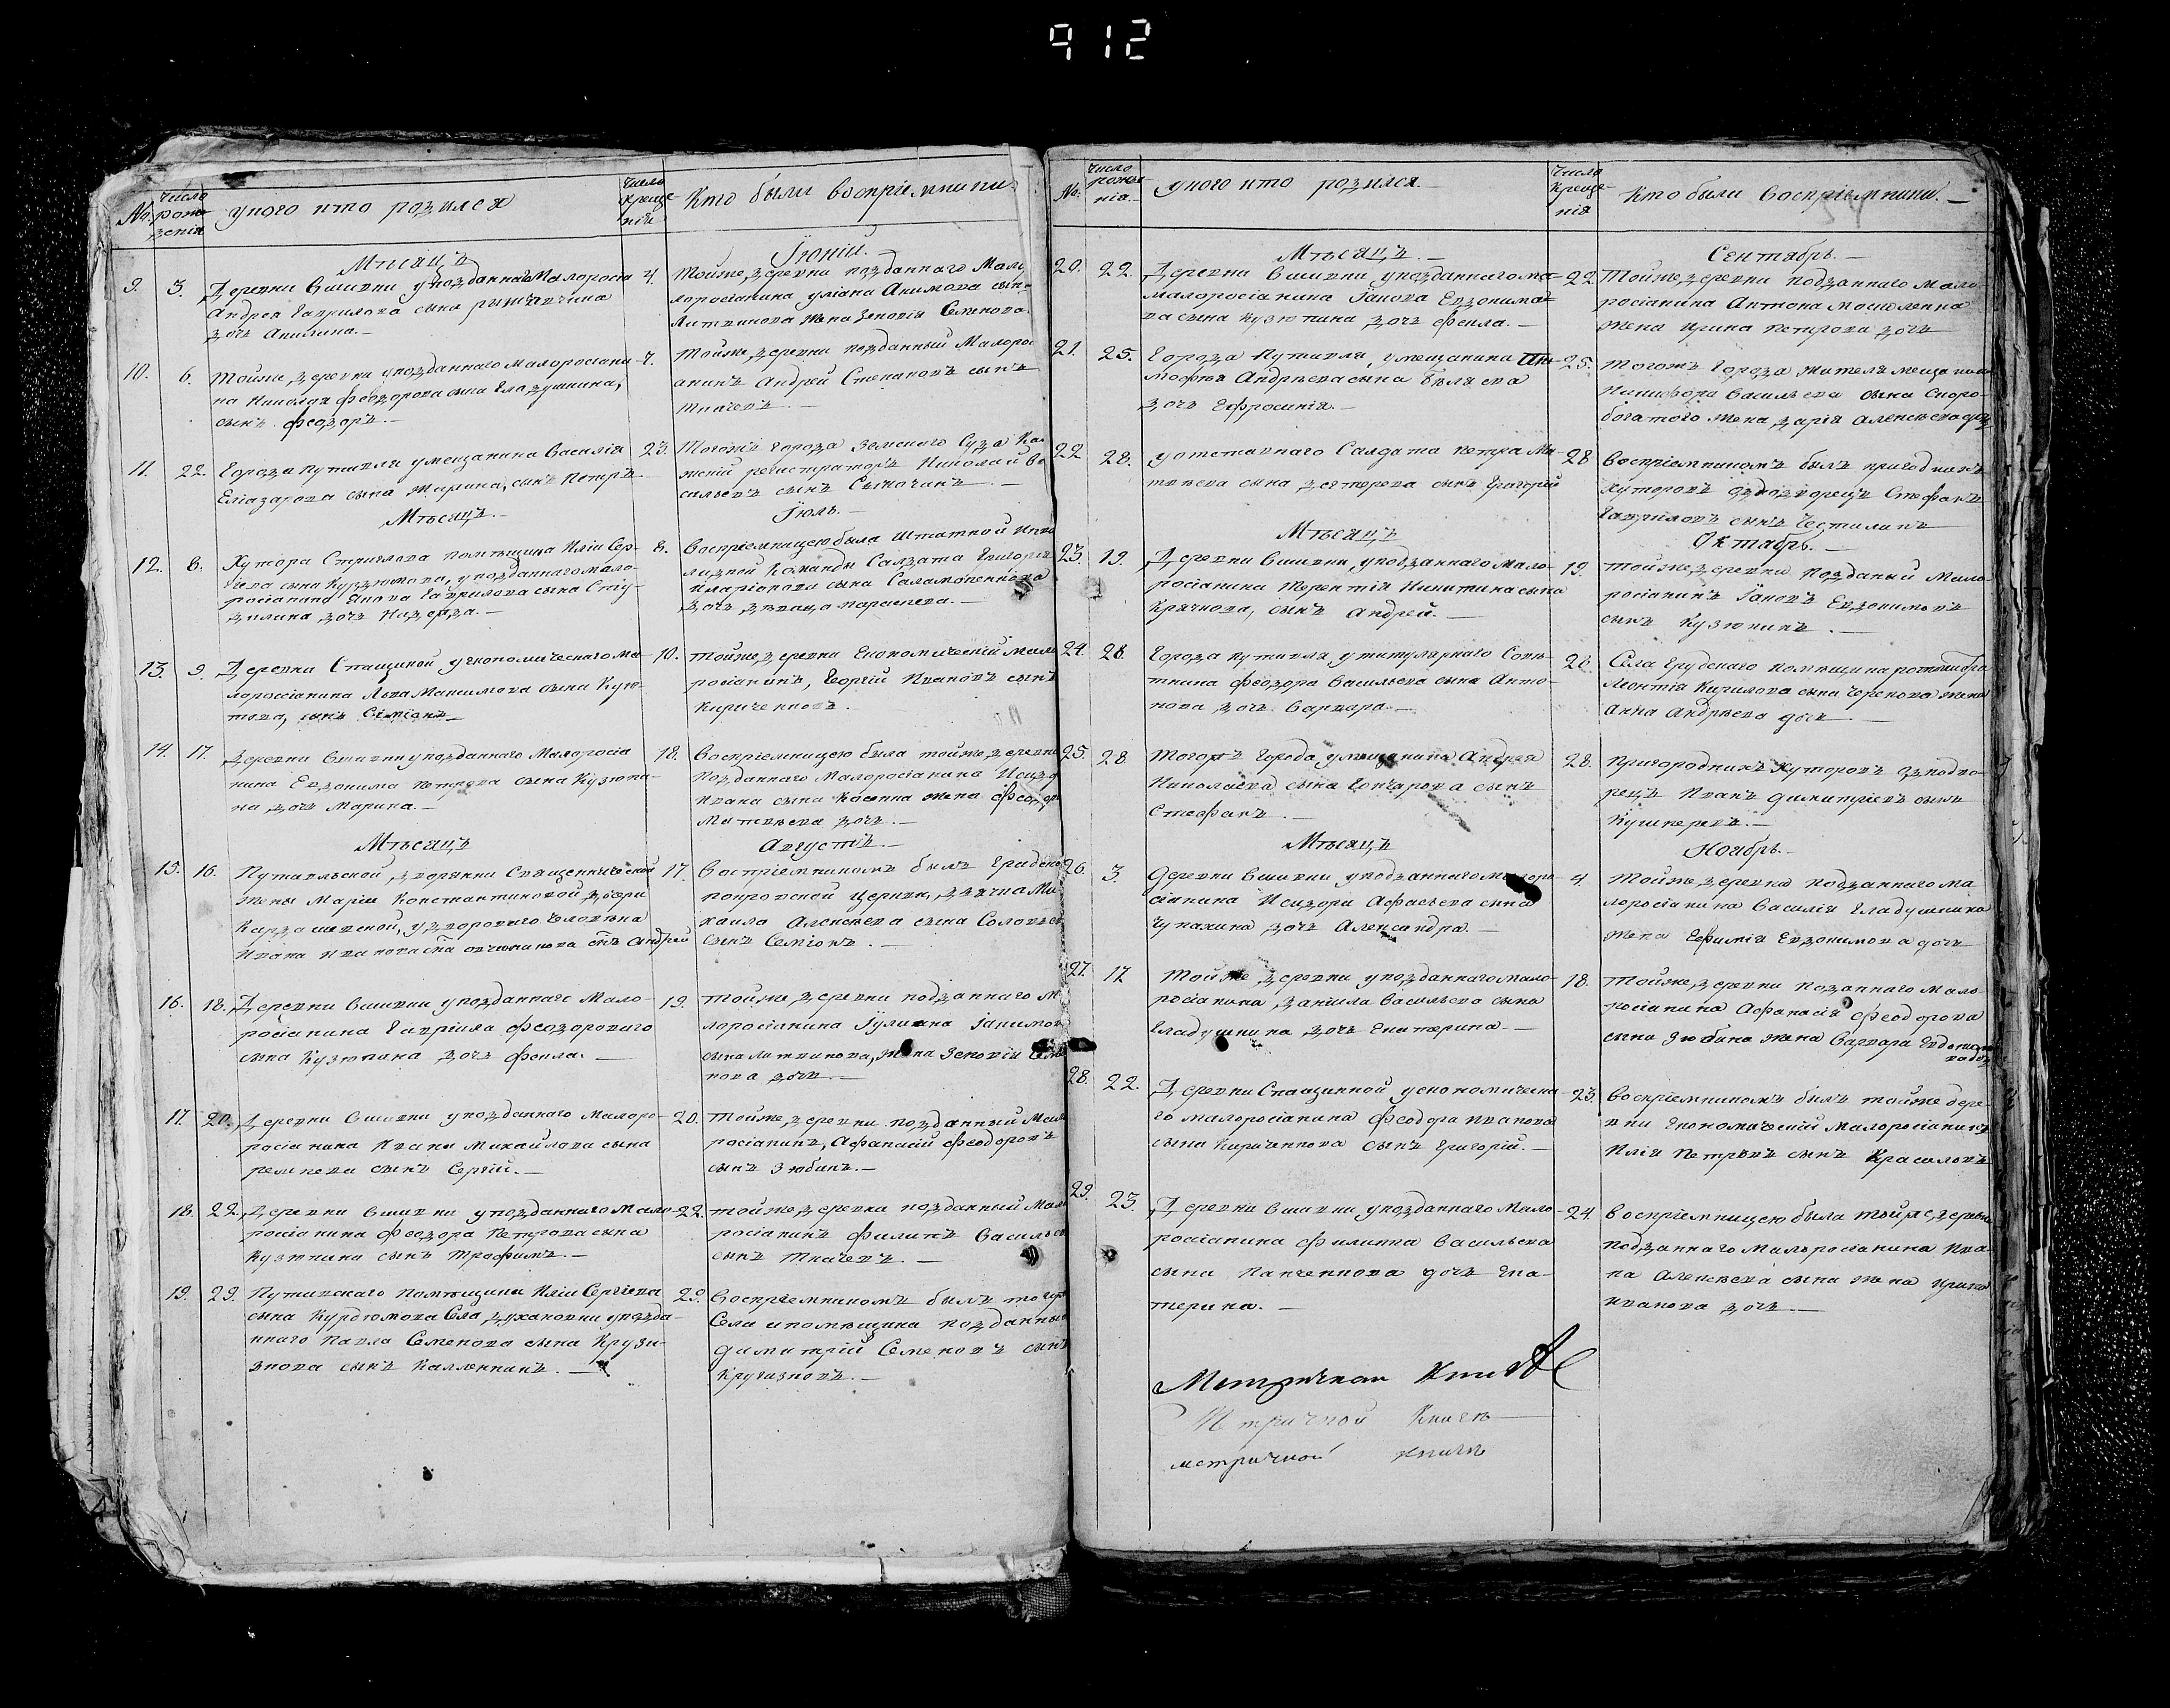 912
No. Число рождения
у кого кто родился
Число крещения
Кто были восприемники.
Мѣсяцъ
Іюній.
9. 3. Деревни Вшивки у подданнаго Малоросіа
Андрея Гаврилова сына
дочь Акилина.
4. Тойже деревни подданнаго Мало
лоросіанина Акимова сын
Литвинова жена Зеновія Семенова
10. 6. Тойже деревни у подданнаго Малоросіани
на Николая Феодорова сына Гладушкина,
сынъ Феодоръ.
7. Тойже деревни подданный Малоро
анинъ Андрей Степановъ сынъ
Ткачевъ.
11. 22. Города Путивля у мещанина Василія
Еліазарова сына Марина, сынъ Петръ
23. Тогожъ города Земскаго Суда
регистраторъ Николай Ва
сильевъ сынъ
Мѣсяцъ.
Іюль.
12. 8. Хутора Стрикалова помѣщика Иліи Сер-
гѣева сына Курдюмова, у подданнаго мало-
росіанина Гаврилова сына
дочь
8. Восприемницею была Штатной Инва
лидной Команды Салдата Григорія
Иларіонова сына
дочь девица параскева.
13. 9. Деревни Спащиной у економическаго ма-
лоросіанина Льва Максимова сына
сынъ Семіонъ
10. тойже деревни Економическій Мало
росіанинъ, Георгій Ивановъ сынъ
Кириченковъ.
14. 17. деревни Вшивки у подданнаго Малоросіа
нина Евдокима Петрова сына Кузюки-
на дочь Марина.
18. Восприемницею была тойже деревни
Подданнаго Малоросіанина
Ивана сына жена Феодора
Матвѣева дочь.
Мѣсяцъ
Августъ.
15. 16. Путивльской дворянки Священнической
жены Маріи Константиновой дочери
у двороваго человѣка
Ивана Иванова сна снъ Андрей
17. Восприемникомъ былъ Градской
покровской Церкви, дьячка Ми
хаила Алексѣева сына Соловьев
сынъ Семіонъ.
16. 18. Деревни Вшивки у подданнаго Мало-
росіанина Гавріила Феодорова
сына Кузюкина дочь Фекла.
19. тойже деревни подданнаго М
лоросіанина Іуліана Іакимов
сына литвинова, жена Зеновія Семе
нова дочь.
17. 20. Деревни Вшивки у подданнаго Малоро-
росіанина Ивана Михайлова сына
сынъ Сергій.
20. Тойже деревни подданный Мал
росіанинъ, Афанасій Феодоровъ
сынъ Зюбинъ.
18. 22. Деревни Вшивки у подданнаго Мало-
росіанина Феодора Петрова сына
Кузюкина сынъ Трофимъ.
22. тойже деревни подданный Мал
росіанинъ Филипъ Васильев
сынъ Ткачевъ.
19. 29. Путивскаго помѣщика Иліи Сергіева
сына Курдюмова Села Духановки у подда-
ннаго Павла Семенова сына
сынъ Каллиникъ.
29. Восприемникомъ былъ тогоже
Села и помѣщика подданный
Димитрій Семеновъ сынъ
No. Число рождения.
у кого кто родился.
Число крещения
Кто были восприемники.
Мѣсяцъ.
Сентябрь.
20. 22. Деревни Вшивки у подданнаго ма-
малоросіанина Іакова Евдокимо-
ва сына Кузюкина дочь Фекла.
22 Тойже деревни подданнаго Мало
росіанина Антона
жена Ирина Петрова дочь
21. 25. Города Путивля, у мещанина Ти-
мофея Андрѣева сына Бѣляева
дочь Ефросинія.
25. Тогожъ Города жителя мещанина
Никифора Васильева сына Скоро-
богатого жена Дарія Алексѣева дочь
22 28. у отставнаго Салдата Петра Ма-
твѣева сына Дегтерева сынъ Григорій
28 Восприемникомъ былъ пригодныхъ
хуторовъ однодворецъ Стефанъ
Гавриловъ сынъ
Мѣсяцъ
Октябрь.
23. 19. Деревни Вшивки, у подданнаго Мало-
росіанина Терентія Никитина сына
Крячкова, сынъ Андрей.
19. тойже деревни подданый Мало-
росіанинъ Іаковъ Евдокимовъ
сынъ Кузюкинъ.
24. 28. Города Путивля у титулярнаго Совѣ-
тника Феодора Васильева сына Анто-
нова дочь Варвара.
28. Села Грудскаго помѣщика
Леонтія Кирилова сына Черепова жена
Анна Андрѣева дочь.
25. 28 Тогожъ Города у мещанина Андрея
Николаева сына Гончарова сынъ
Стефанъ.
28. Пригородныхъ хуторовъ однодво-
рецъ Иванъ Димитріевъ сынъ
Мѣсяцъ
Ноябрь.
26. 3. Деревни Вшивки у подданнаго малоро-
сіанина Исидора сына
Чупахина дочь Александра.
4. Тойже деревни подданнаго Ма
лоросіанина Василія Гладушкина
жена Ефимія Евдокимова дочь
27. 17 Тойже деревни у подданнаго мало-
росіанина, Даніила Васильева сына
Гладушкина дочь Екатерина.
18. Тойже деревни поданнаго Мало-
росіанина Афанасія Феодорова
сына Зюбина жена Варвара Евдокимо
ва доч
28. 22. Деревни Спащинной у економическа-
го малоросіанина Феодора Иванова
сына Кириченкова сынъ Григорій.
23. Восприемникомъ былъ тойже дере-
вни Економическій малоросіанинъ
Илія Петровъ сынъ Красиловъ
29. 23. Деревни Вшивки у подданнаго Мало-
росіанина Филипа Васильева
сына Панченкова дочь Ека-
терина.
24. Восприемницею была тойже деревни
подданнаго Малоросіанина Ива-
на Алексѣева сына жена Ирина
Иванова дочь.
Метрическая
Метричной Книги
метричной книги